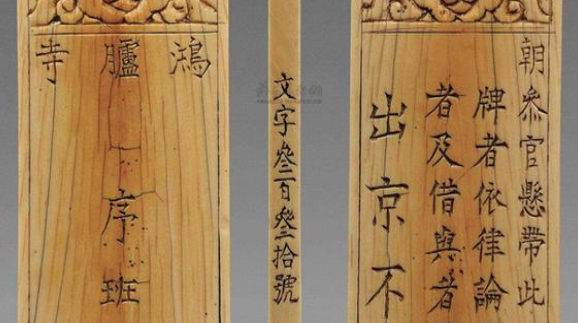 鴻臚寺
序班
文字叁百叁拾號
朝叅官懸帶此
牌者依律論
者及借與者
出京不